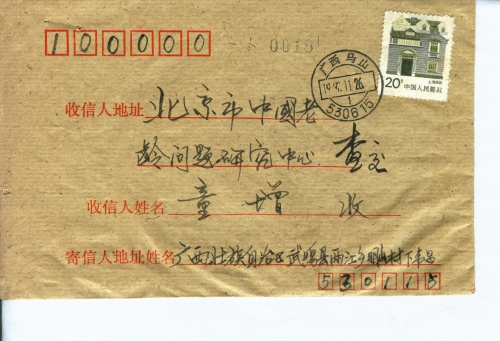 100000
0018
广西马山
1992.11.26
1
530615
20分
上海民居
中国人民邮政
收信人地址 北京市中國老
龄问题研究中心 查交
收信人姓名 童增 收
寄信人地址姓名 广西壮族自治区武鸣县两江乡
530115